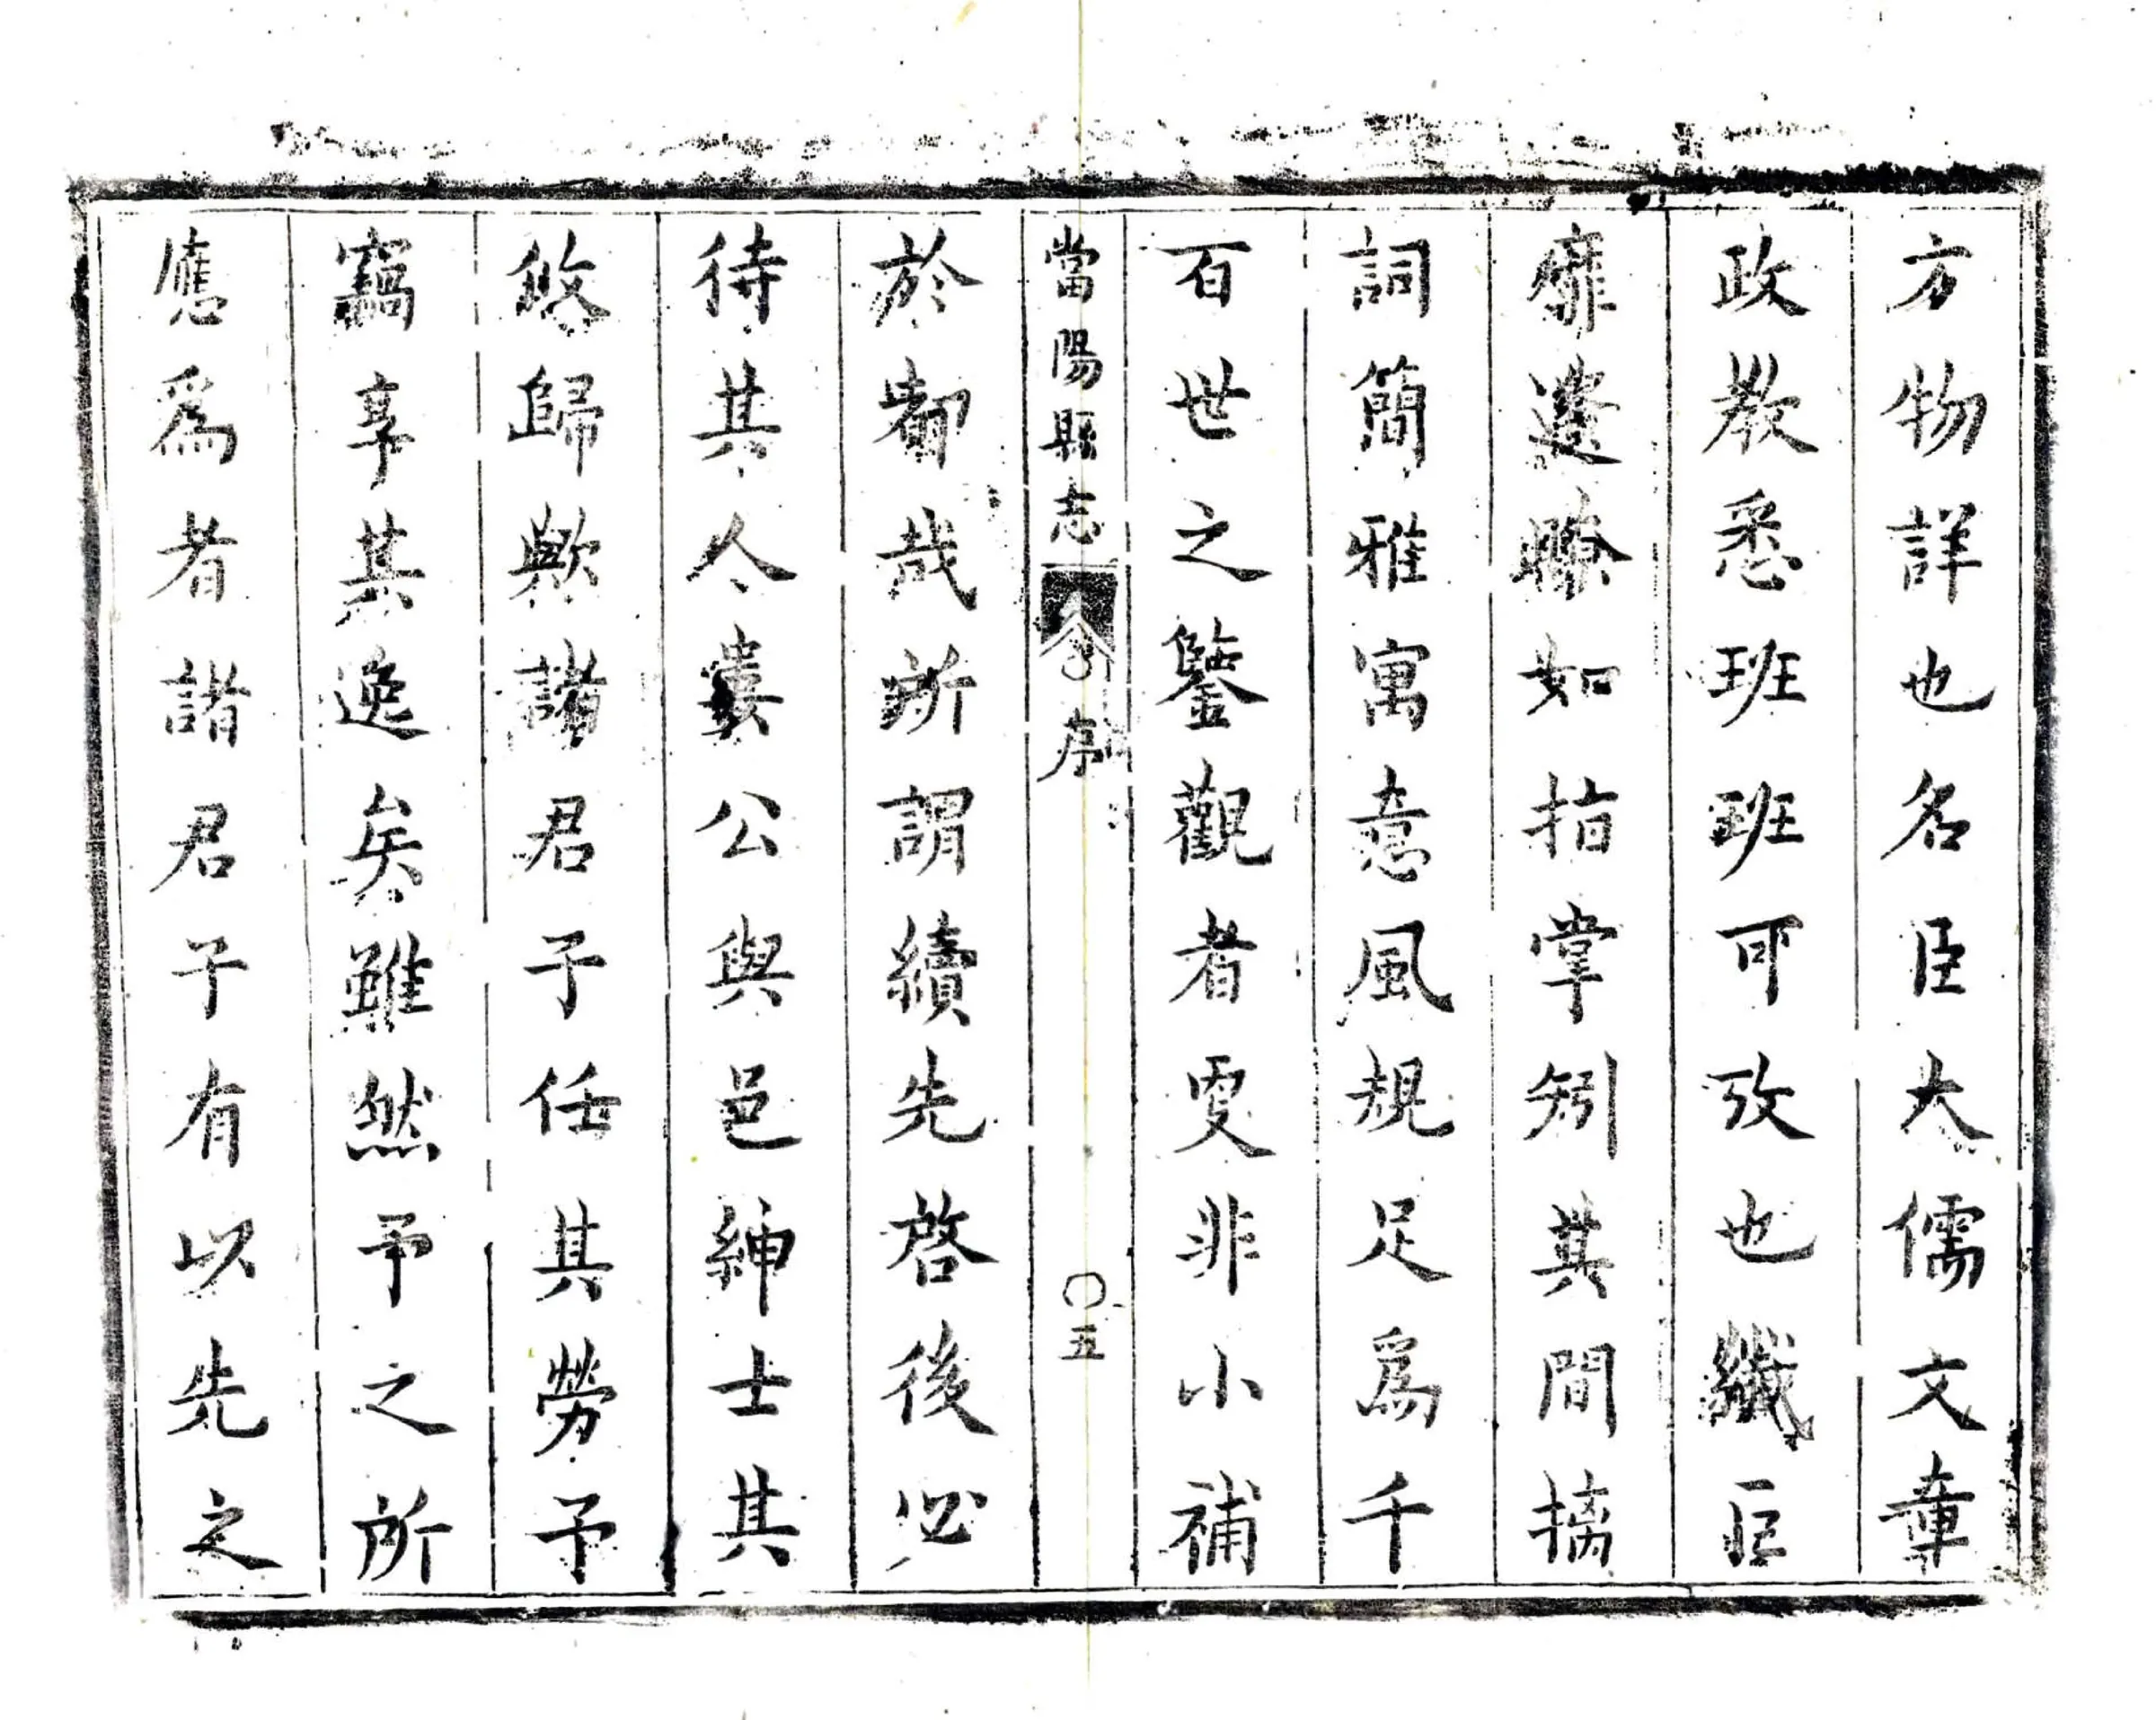 方物詳也名臣大儒文章
政教悉班班可攷也纖巨
靡遺瞭如指掌矧其間摛
詞簡雅寓意風規足爲千
百世之鑒觀者更非小補
當陽縣志 序 〇五
於都哉所謂續先啓後必
待其人婁公與邑紳士其
攸歸歟諸君子任其勞予
竊享其逸矣雖然予之所
應爲者諸君子有以先之